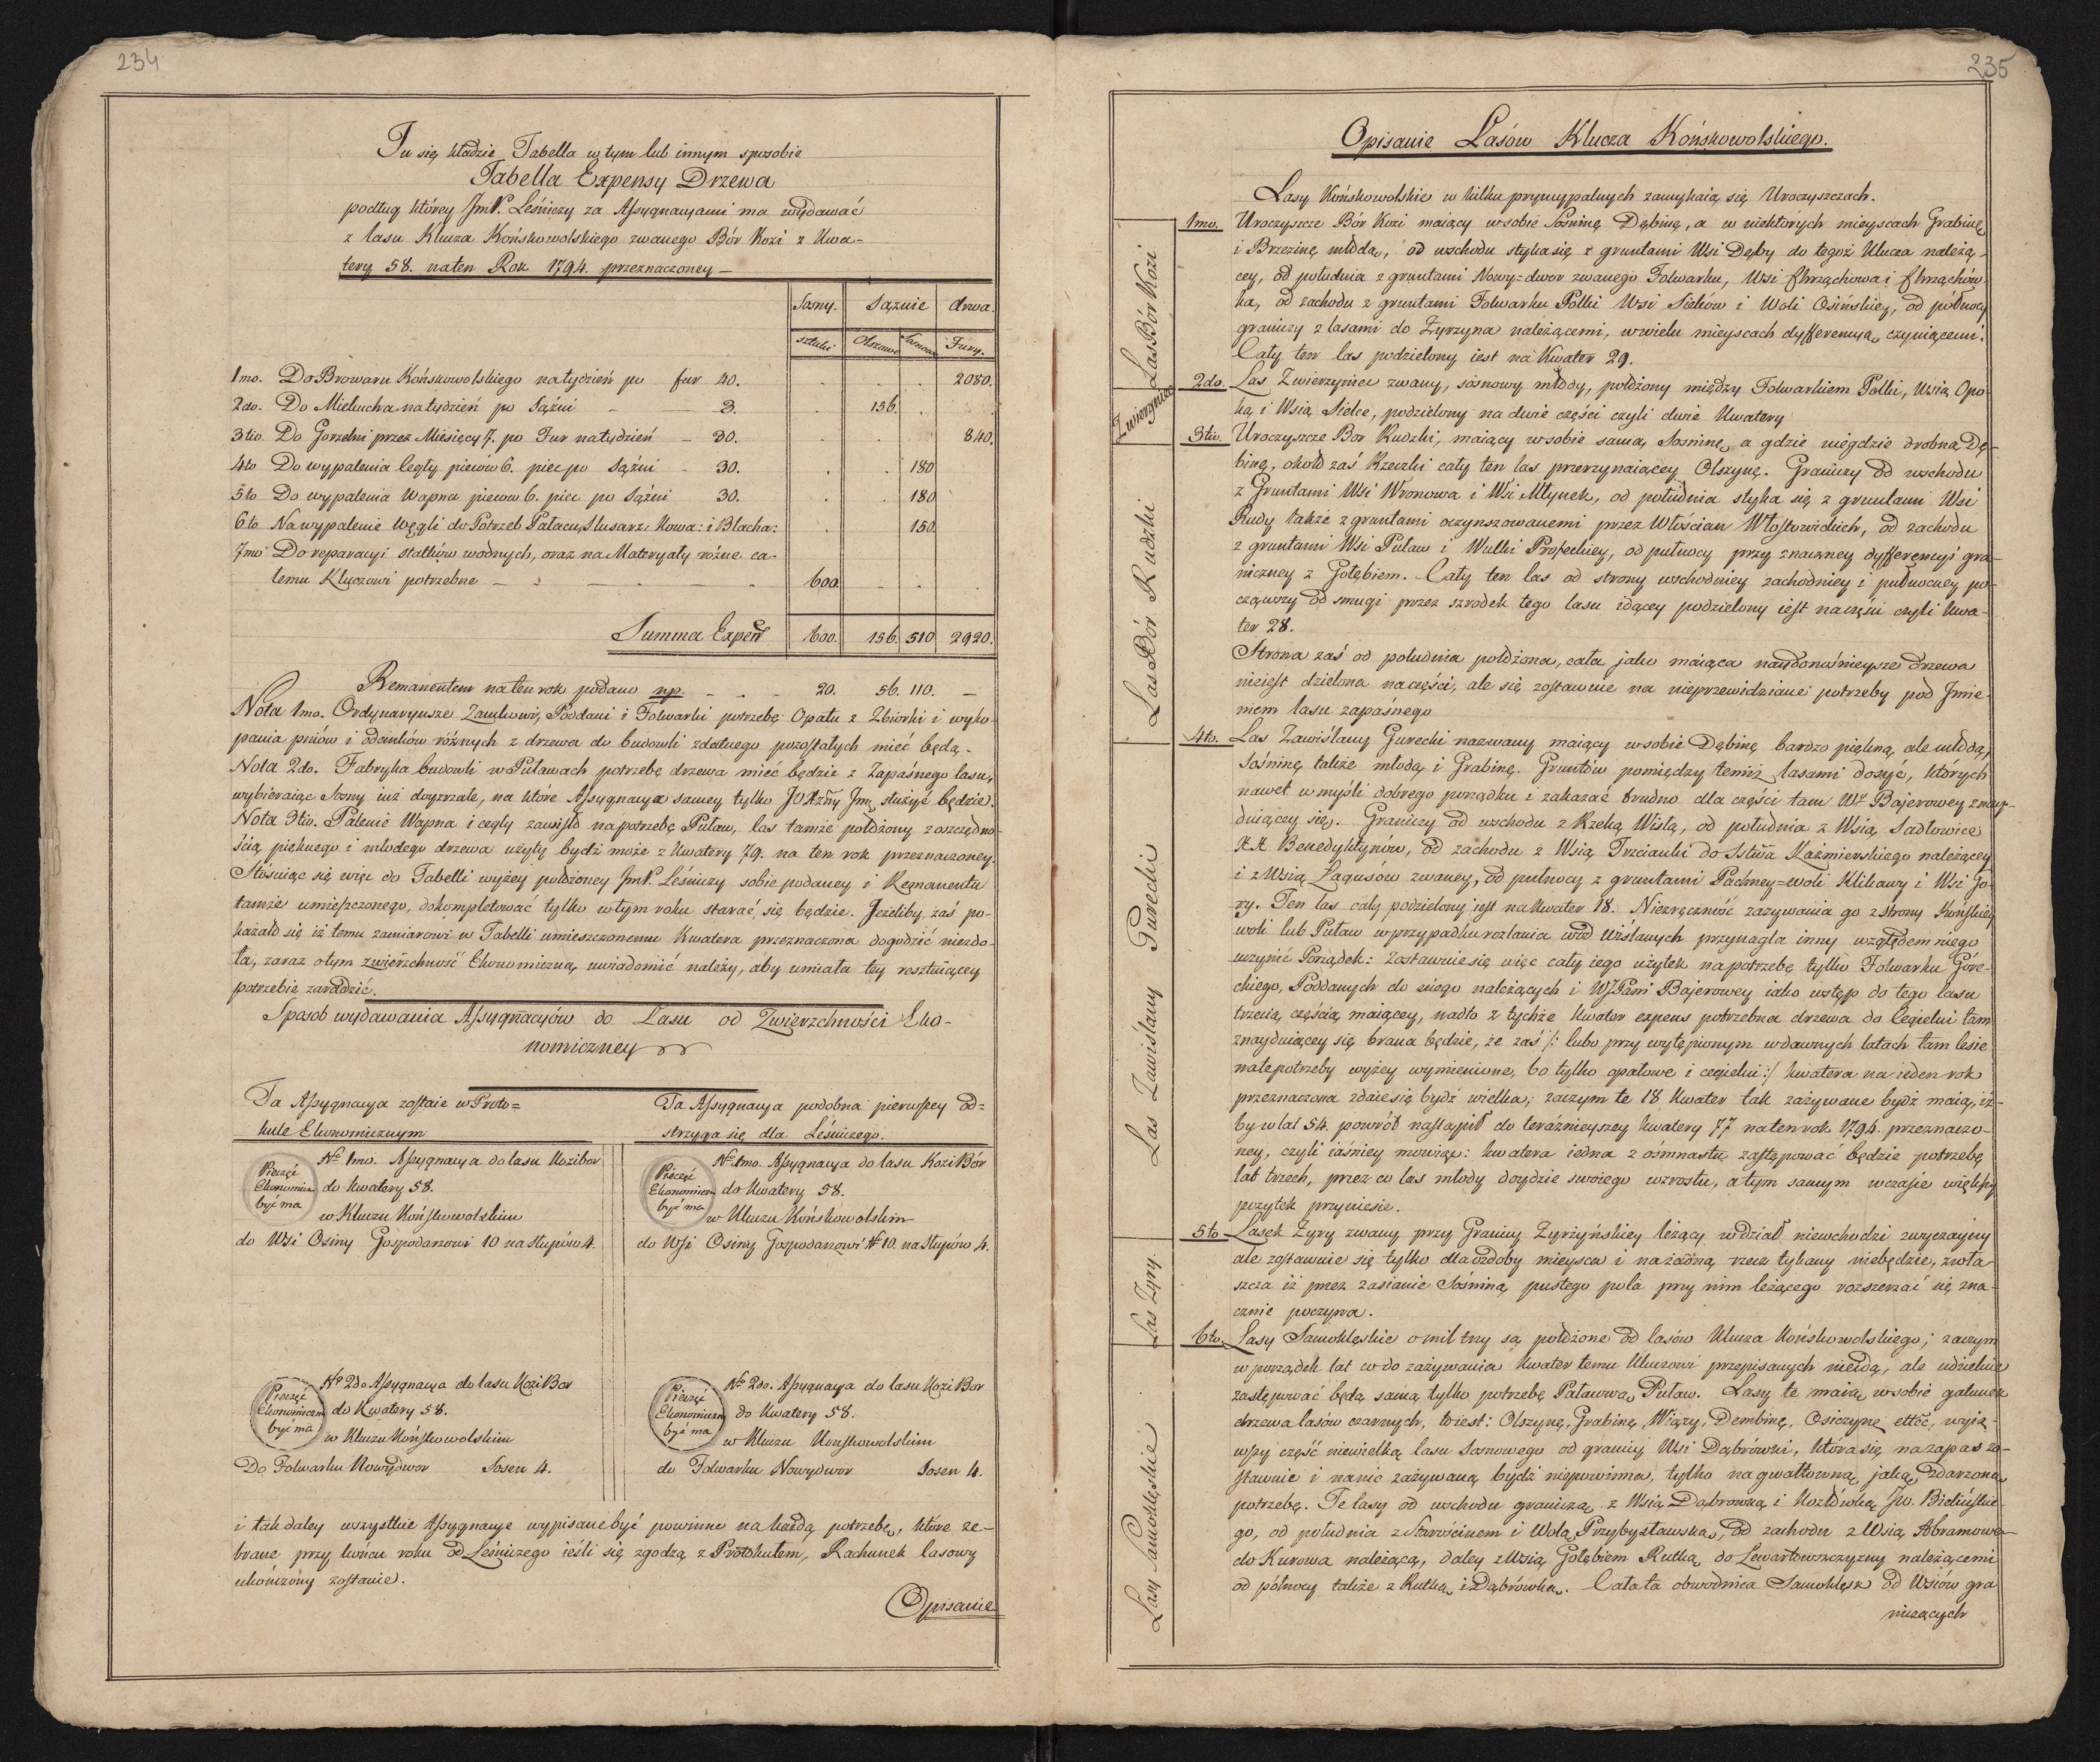 234
Tu się kładzie Tabella w tym lub innym sposobie
Tabella Expensy Drzewa
podług którey JmP. Leśniczy za Assygnacyami ma wydawać
z lasu Klucza Końskowolskiego zwanego Bór Kozi z Kwa-
tery 58. naten Rok 1794. przeznaczoney —
Sosny. Sążnie drwa.
sztuki Olszowe Sosnowe Fury.
1mo. Do Browaru Końskowolskiego natydzień po fur 40. . . . 2080.
2do. Do Mielucha natydzień po Sążni - - 3. . 156. . .
3tio. Do Gorzelni przez Miesięcy 7. po Fur natydzień - 30. . . . 840.
4to Do wypalenia Cegły pieców 6. piec po Sążni - 30. . . 180
5to Do wypalenia Wapna pieców 6. piec po Sążni 30. . . 180
6to Na wypalenie Węgli do Potrzeb Pałacu, Slusarz: Kowa: i Blacha: . . 150.
7mo Do reparacyi statków wodnych, oraz na Materyały rożne ca-
łemu Kluczowi potrzebne — - — - — . 600. - .
Summa Expen 600. 156. 510 2920.
Remanentem na ten rok podano np. - - - 20. 56. 110. —
Nota 1mo. Ordynaryusze Zamkowi, Poddani i Folwarki potrzebę Opału z Zbiorki i wyko-
pania pniów i odcinków różnych z drzewa do budowli zdatnego pozostałych mieć będą.
Nota 2do. Fabryka budowli w Puławach potrzebę drzewa mieć będzie z Zapaśnego lasu,
wybieraiąc Sosny iuż doyrzałe, na które Assygnacya samey tylko JOXżny Jmę służyć będzie.
Nota 3tio. Palenie Wapna i cegły zawisło napotrzebę Puław, las tamże położony z oszczędno-
ścią pięknego i młodego drzewa użyty bydź może z Kwatery 79. na ten rok przeznaczoney.
Stosuiąc się więc do Tabelli wyżey położoney JmP. Leśniczy sobie podaney i Remanentu
tamże umieszczonego, dokompletować tylko wtym roku starać się będzie. Jeżeliby zaś po-
kazało się iż temu zamiarowi w Tabelli umieszczonemu Kwatera przeznaczona dogodzić niezdo-
ła, zaraz otym zwierzchność Ekonomiczną uwiadomić należy, aby umiała tey resztuiącey
potrzebie zaradzić.
Sposob wydawania Assygnacyów do Lasu od Zwierzchności Eko-
nomiczney
Ta Assygnacya zostaie w Proto=
kule Ekonomicznym
Ta Assygnacya podobna pierwszey od=
strzyga się dla Leśniczego.
Pieczęć
Ekonomiczn
być ma
No 1mo. Assygnacya do lasu Kozibor
do Kwatery 58.
w Kluczu Końskowolskim
do Wsi Osiny Gospodarzowi 10 na słupów 4.
Pieczęć
Ekonomiczn
być ma
No 1mo. Assygnacya do lasu Kozi Bór
do Kwatery 58.
w Kluczu Końskowolskim
do Wsi Osiny Gospodarzowi No 10. na Słupów 4.
Pieczęć
Ekonomiczn
być ma
No 2do Assygnacya do lasu Kozi Bor
do Kwatery 58.
w Kluczu Końskowolskim
Do Folwarku Nowydwor Sosen 4.
Pieczęć
Ekonomiczn
być ma
No 2do. Assygnacya do lasu Kozi Bor
do Kwatery 58.
w Kluczu Konskowolskim
do Folwarku Nowydwor Sosen 4.
i tak daley wszystkie Assygnacye wypisane być powinne na każdą potrzebę, które ze-
brane przy końcu roku od Leśniczego ieśli się zgodzą z Protokułem, Rachunek lasowy
ukończony zostanie.
Opisanie
235
Opisanie Lasów Klucza Końskowolskiego.
Lasy Końskowolskie w kilku pryncypalnych zamykaią się Uroczyszczach.
Las Bór Kozi
1mo. Uroczyszcze Bór Kozi maiący wsobie Sośninę Dębinę, a w niektórych mieyscach Grabinę
i Brzezinę młodą, od wschodu styka się z gruntami Wsi Dęby do tegoż Klucza należą-
cey, od południa z gruntami Nowy=dwor zwanego Folwarku, Wsi Chrząchowa i Chrząchów-
ka, od zachodu z gruntami Folwarku Polki Wsi Sielców i Woli Osińskiey, od północy
graniczy z lasami do Żyrzyna należącemi, wwielu mieyscach dyfferencyą czyniącemi.
Cały ten las podzielony iest na Kwater 29.
Zwierzyniec
2do. Las Zwierzyniec zwany, sosnowy młody, położony między Folwarkiem Polki, Wsią Opo-
ką i Wsią Sielce, podzielony na dwie części czyli dwie Kwatery
Las Bór Rudzki
3tio. Uroczyszcze Bor Rudzki, maiący wsobie samą Sosninę, a gdzie niegdzie drobną Dę-
binę, około zaś Rzeczki cały ten las przerzynaiącey Olszynę. Graniczy od wschodu
z Gruntami Wsi Wronowa i Wsi Młynek, od południa styka się z gruntami Wsi
Rudy także z gruntami oczynszowanemi przez Włościan Włostowickich, od zachodu
z gruntami Wsi Puław i Wulki Profeckiey, od pułnocy przy znaczney dyfferencyi gra-
niczney z Gołębiem. Cały ten las od strony wschodniey zachodniey i pułnocney po-
cząwszy od smugi przez szrodek tego lasu idącey podzielony iest naczęści czyli Kwa-
ter 28.
Strona zaś od południa położona, cała jako maiąca naydonośnieysze drzewa
nieiest dzielona naczęści, ale się zostawuie na nieprzewidziane potrzeby pod Jmie-
niem lasu zapaśnego
Las Zawiślany Gurecki
4to. Las Zawiślany Gurecki nazwany maiący wsobie Dębinę bardzo piękną ale młodą,
Sośninę także młodą i Grabinę. Gruntów pomiędzy temiż lasami dosyć, których
nawet w myśli dobrego porządku i zakazać trudno dla części tam Wr Bajerowey znay-
duiącey się. Graniczy od wschodu z Rzeką Wisłą, od południa z Wsią Sadłowice
XX Benedyktynów, od zachodu z Wsią Trzcianki do Sstwa Kaźmierskiego należącey
i z Wsią Łagusów zwaney, od pułnocy z gruntami Pachney=woli Klikawy i Wsi Go-
ry. Ten las cały podzielony iest na Kwater 18. Niezręczność zazywania go z strony Końskiey
woli lub Puław wprzypadku rozlania wód Wiślanych przynagla inny względem niego
uczynić Porządek: zostawuie się więc cały iego użytek na potrzebę tylko Folwarku Góre-
ckiego, Poddanych do niego należących i WJPani Bajerowey iako wstęp do tego lasu
trzecią częścią maiącey, nadto z tychże Kwater expens potrzebna drzewa do Cegielni tam
znayduiącey się brana będzie, że zaś /: lubo przy wytępionym wdawnych latach tam lesie
nate potrzeby wyżey wymienione, bo tylko opałowe i cegielni :/ Kwatera na ieden rok
przeznaczona zdaie się bydź wielka; zaczym te 18 Kwater tak zażywane bydź maią, iż-
by w lat 54. powrót nastąpił do teráźnieyszey Kwatery 77 na ten rok 1794. przeznaczo-
ney, czyli iaśniey mowiąc: Kwatera iedna z ośmnastu zastępować będzie potrzebę
lat trzech, przez co las młody doydzie swoiego wzrostu, a tym samym wczasie większy
pożytek przyniesie.
Las Żyry.
5to Lasek Żyry zwany przy Granicy Żyrzyńskiey leżący w dział niewchodzi zwyczayny
ale zostawuie się tylko dla ozdoby mieysca i na żadną rzecz tykany niebędzie, zwła-
szcza iż przez zasianie Sośniną pustego pola przy nim leżącego rozszerzać się zna-
cznie poczyna.
Lasy Samoklęskie
6to. Lasy Samoklęskie o mil trzy są położone od lasów Klucza Końskowolskiego; zaczym
w porządek lat co do zażywania Kwater temu Kluczowi przepisanych nieidą, ale udzielnie
zastępować będą samą tylko potrzebę Pałacową Puław. Lasy te maią wsobie gatunek
drzewa lasów czarnych, toiest: Olszynę, Grabinę, Wiązy, Dembinę, Osiczynę ettc, wyią-
wszy część niewielką lasu Sosnowego od granicy Wsi Dąbrówki, która się na zapas zo-
stawuie i nanic zażywaną bydź niepowinna, tylko na gwałtowną jaką zdarzoną
potrzebę. Te lasy od wschodu graniczą z Wsią Dąbrowką i Kozłówką Jw. Bielińskie-
go, od południa z Starościnem i Wolą Przybysławską, od zachodu z Wsią Abramowe
do Kurowa należącą, daley z Wsią Gołębiem Rutką do Lewartowszczyzny należącemi
od północy także z Rutką i Dąbrówką. Cała ta obwodnica Samoklęsk od Wsiów gra
niczących